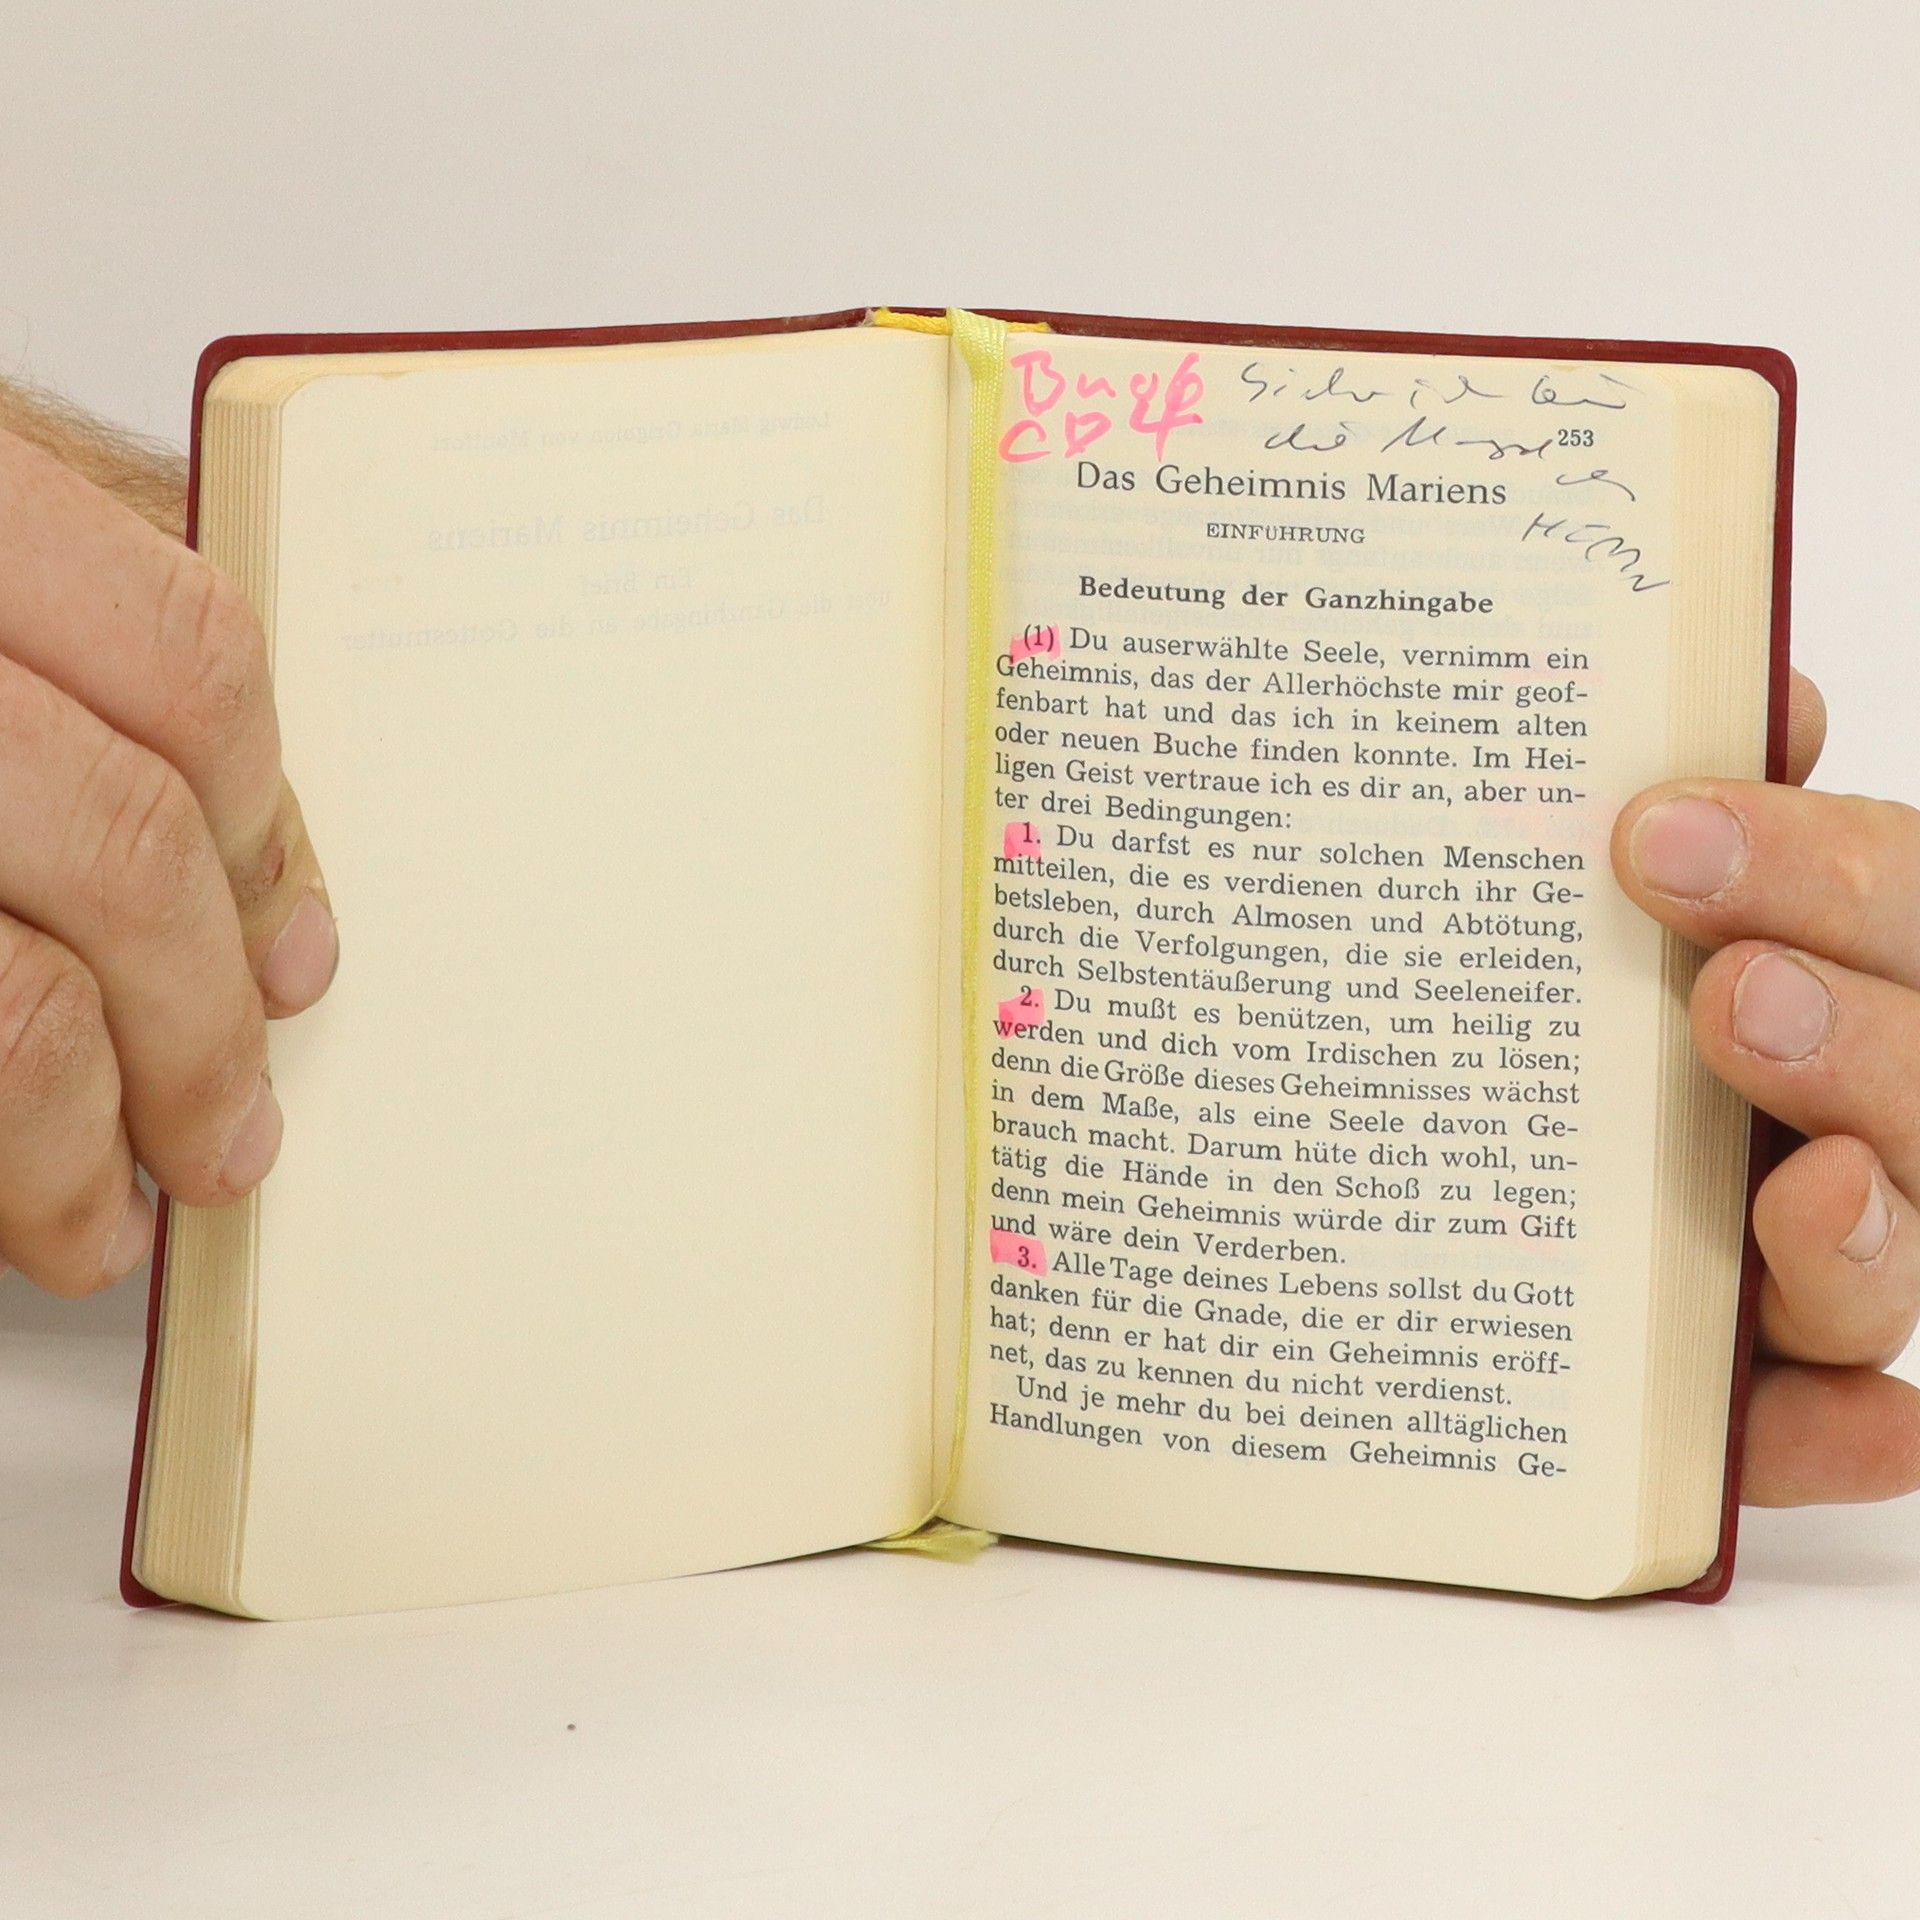 Siehe ich bin
die Magd
253
HERRN
Das Geheimnis Mariens
EINFÜHRUNG
Bedeutung der Ganzhingabe
(1) Du auserwählte Seele, vernimm ein
Geheimnis, das der Allerhöchste mir geof-
fenbart hat und das ich in keinem alten
oder neuen Buche finden konnte. Im Hei-
ligen Geist vertraue ich es dir an, aber un-
ter drei Bedingungen:
1. Du darfst es nur solchen Menschen
mitteilen, die es verdienen durch ihr Ge-
betsleben, durch Almosen und Abtötung,
durch die Verfolgungen, die sie erleiden,
durch Selbstentäußerung und Seeleneifer.
2. Du mußt es benützen, um heilig zu
werden und dich vom Irdischen zu lösen;
denn die Größe dieses Geheimnisses wächst
in dem Maße, als eine Seele davon Ge-
brauch macht. Darum hüte dich wohl, un-
tätig die Hände in den Schoß zu legen;
denn mein Geheimnis würde dir zum Gift
und wäre dein Verderben.
3. Alle Tage deines Lebens sollst du Gott
danken für die Gnade, die er dir erwiesen
hat; denn er hat dir ein Geheimnis eröff-
net, das zu kennen du nicht verdienst.
Und je mehr du bei deinen alltäglichen
Handlungen von diesem Geheimnis Ge-